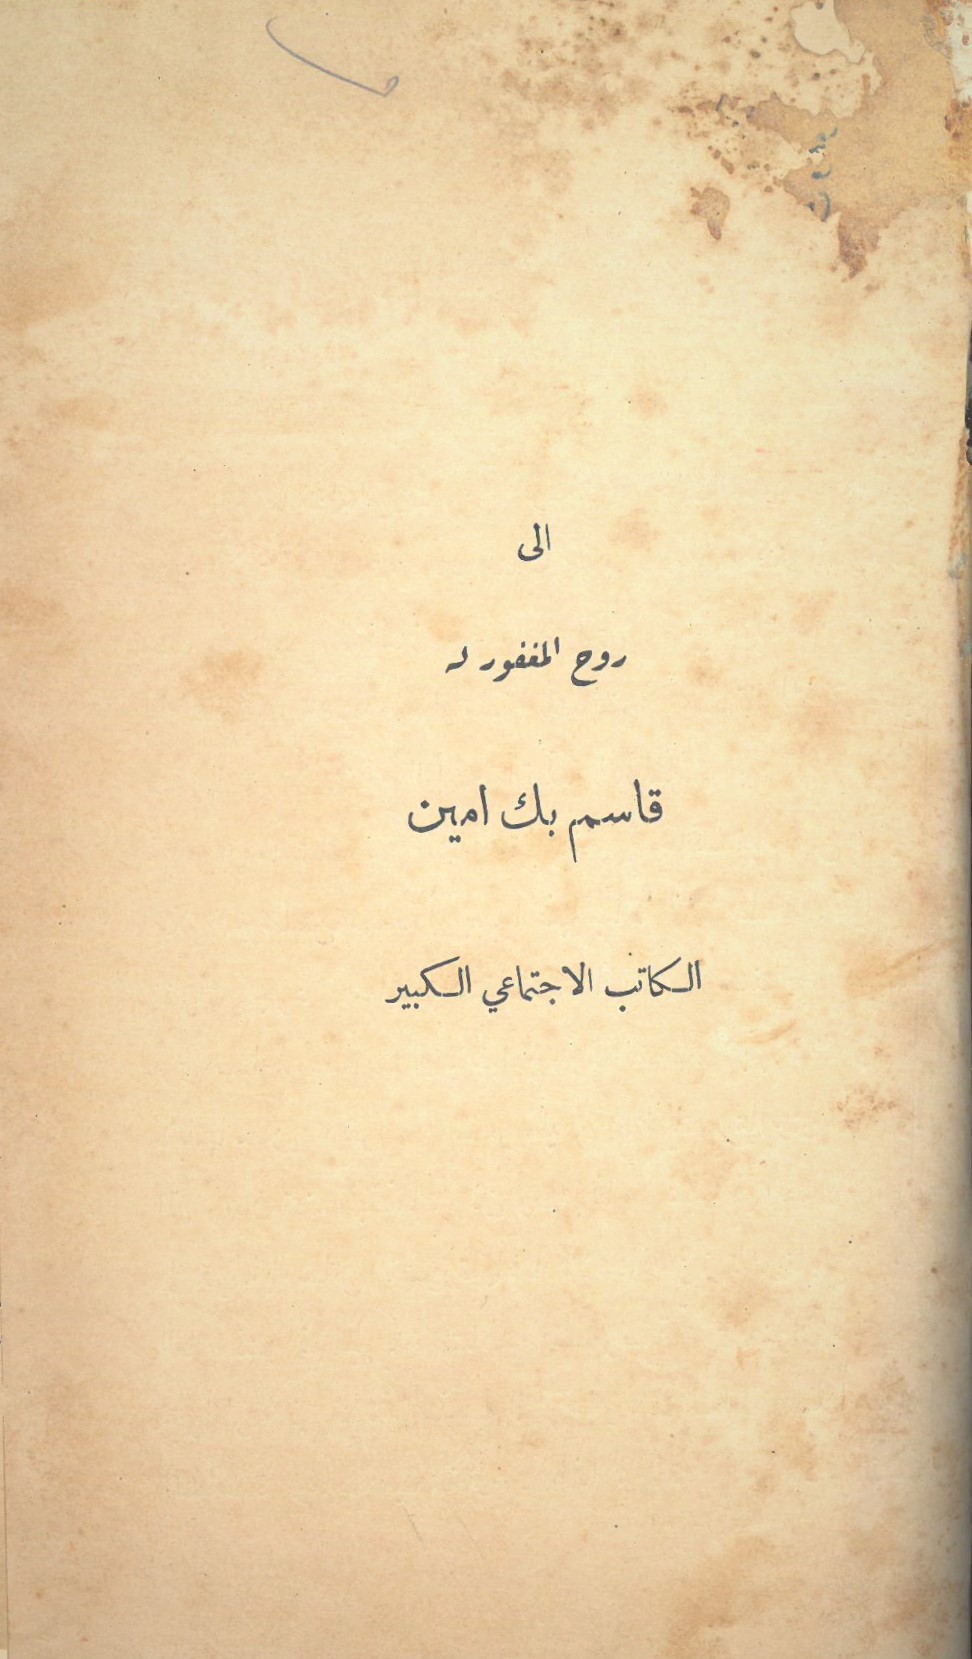 الى
روح المغفور له
قاسم بك امين
الكاتب الاجتماعي الكبير